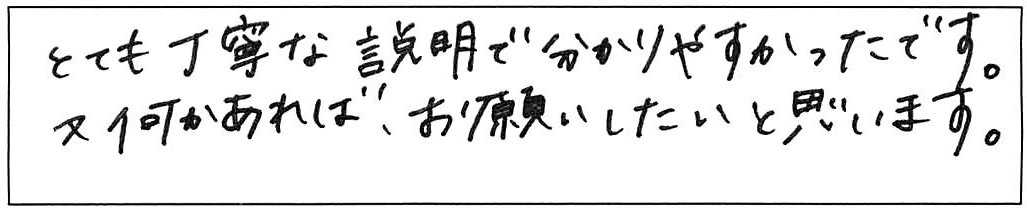 とても丁寧な説明で分かりやすかったです。
又何かあれば、お願いしたいと思います。